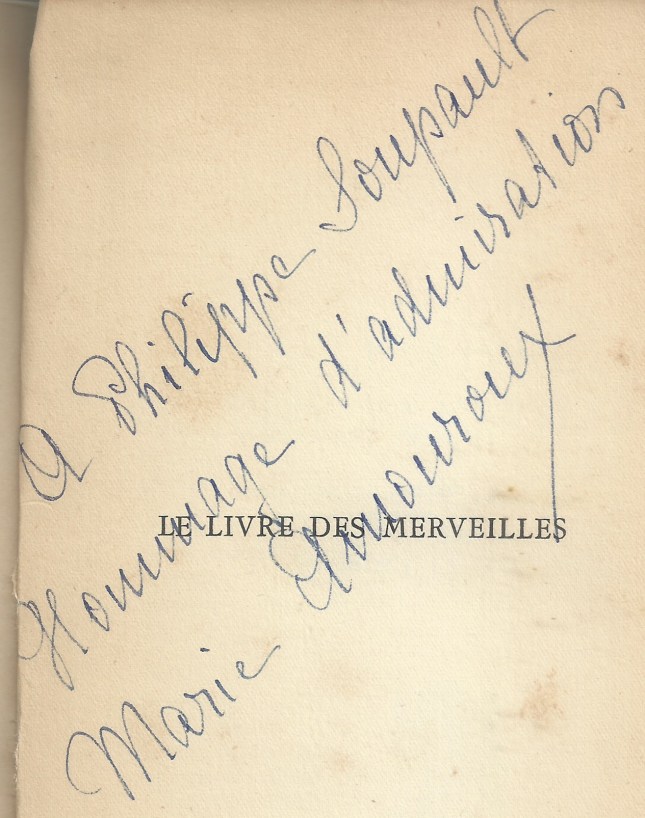 A Philippe Soupault
Hommage d'admiration
Marie Amouroux
LE LIVRE DES MERVEILLES